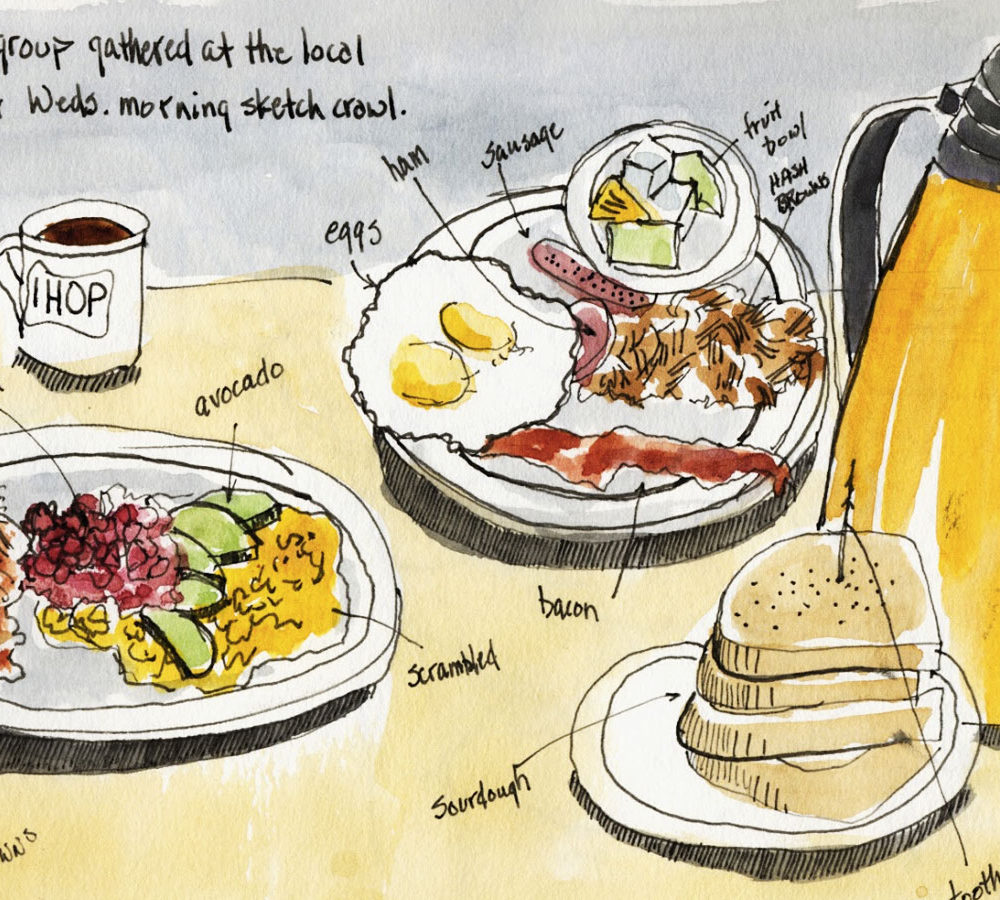 group gathered at the local
Weds. morning sketch crawl.
ham
sausage
fruit
bowl
HASH
BROWNS
eggs
IHOP
avocado
bacon
scrambled
Sourdough